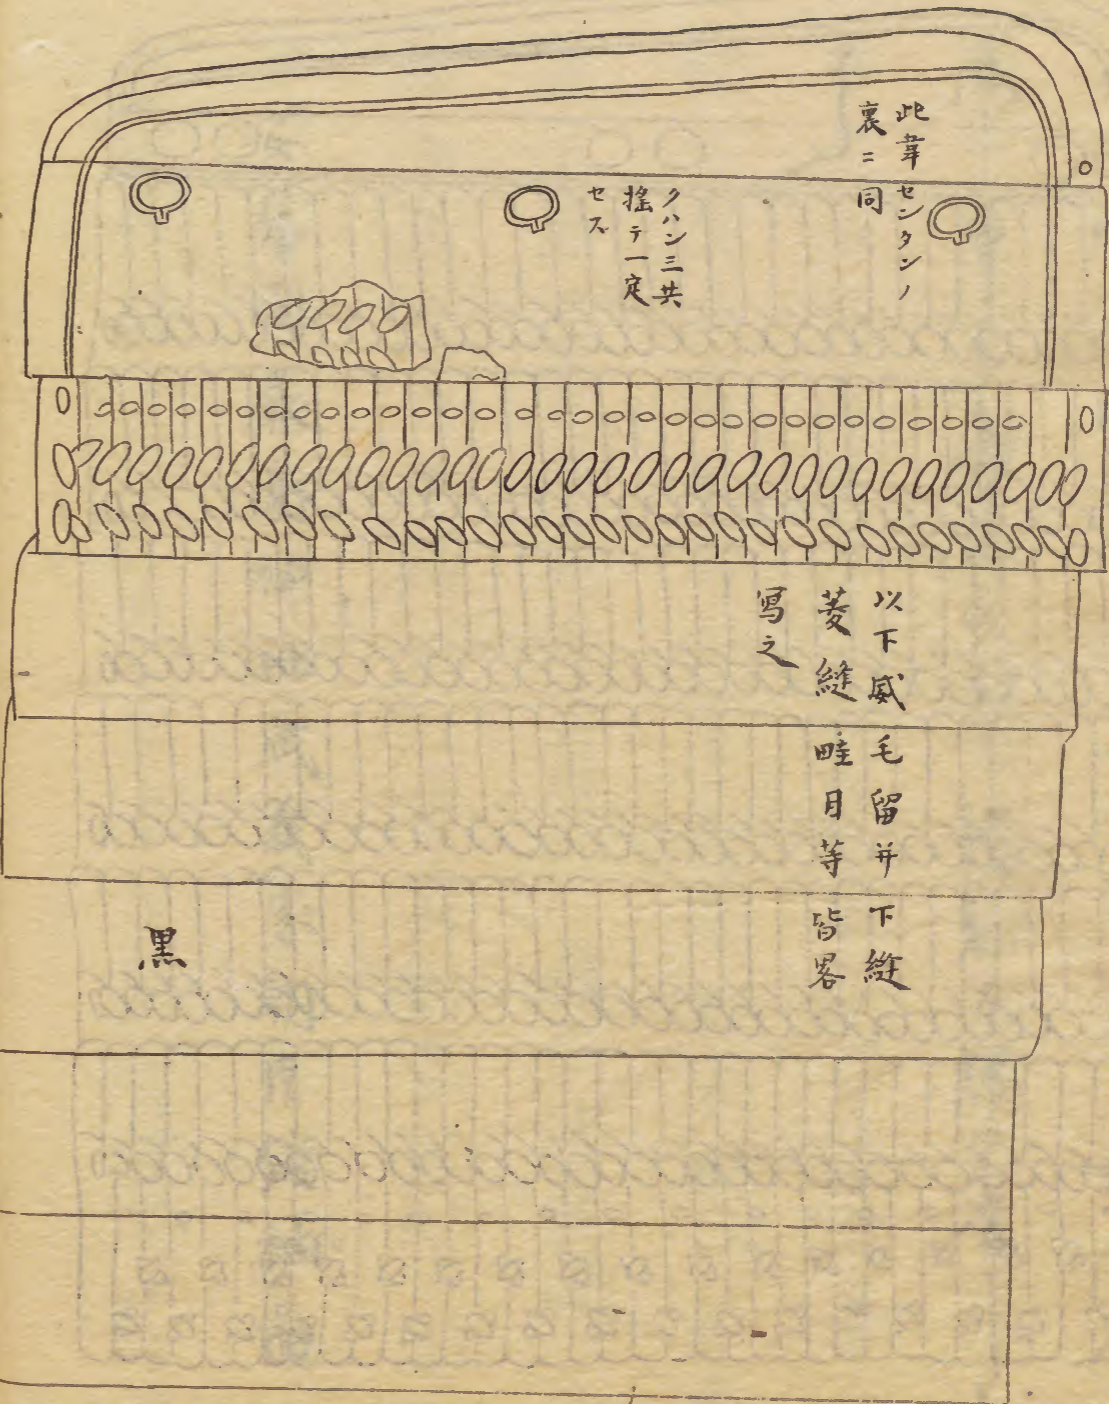 此韋センタンノ
裏ニ同
クハン三共
揺テ一定
セズ
以下威毛留并下縫
菱縫畦目等皆畧
写之
黒